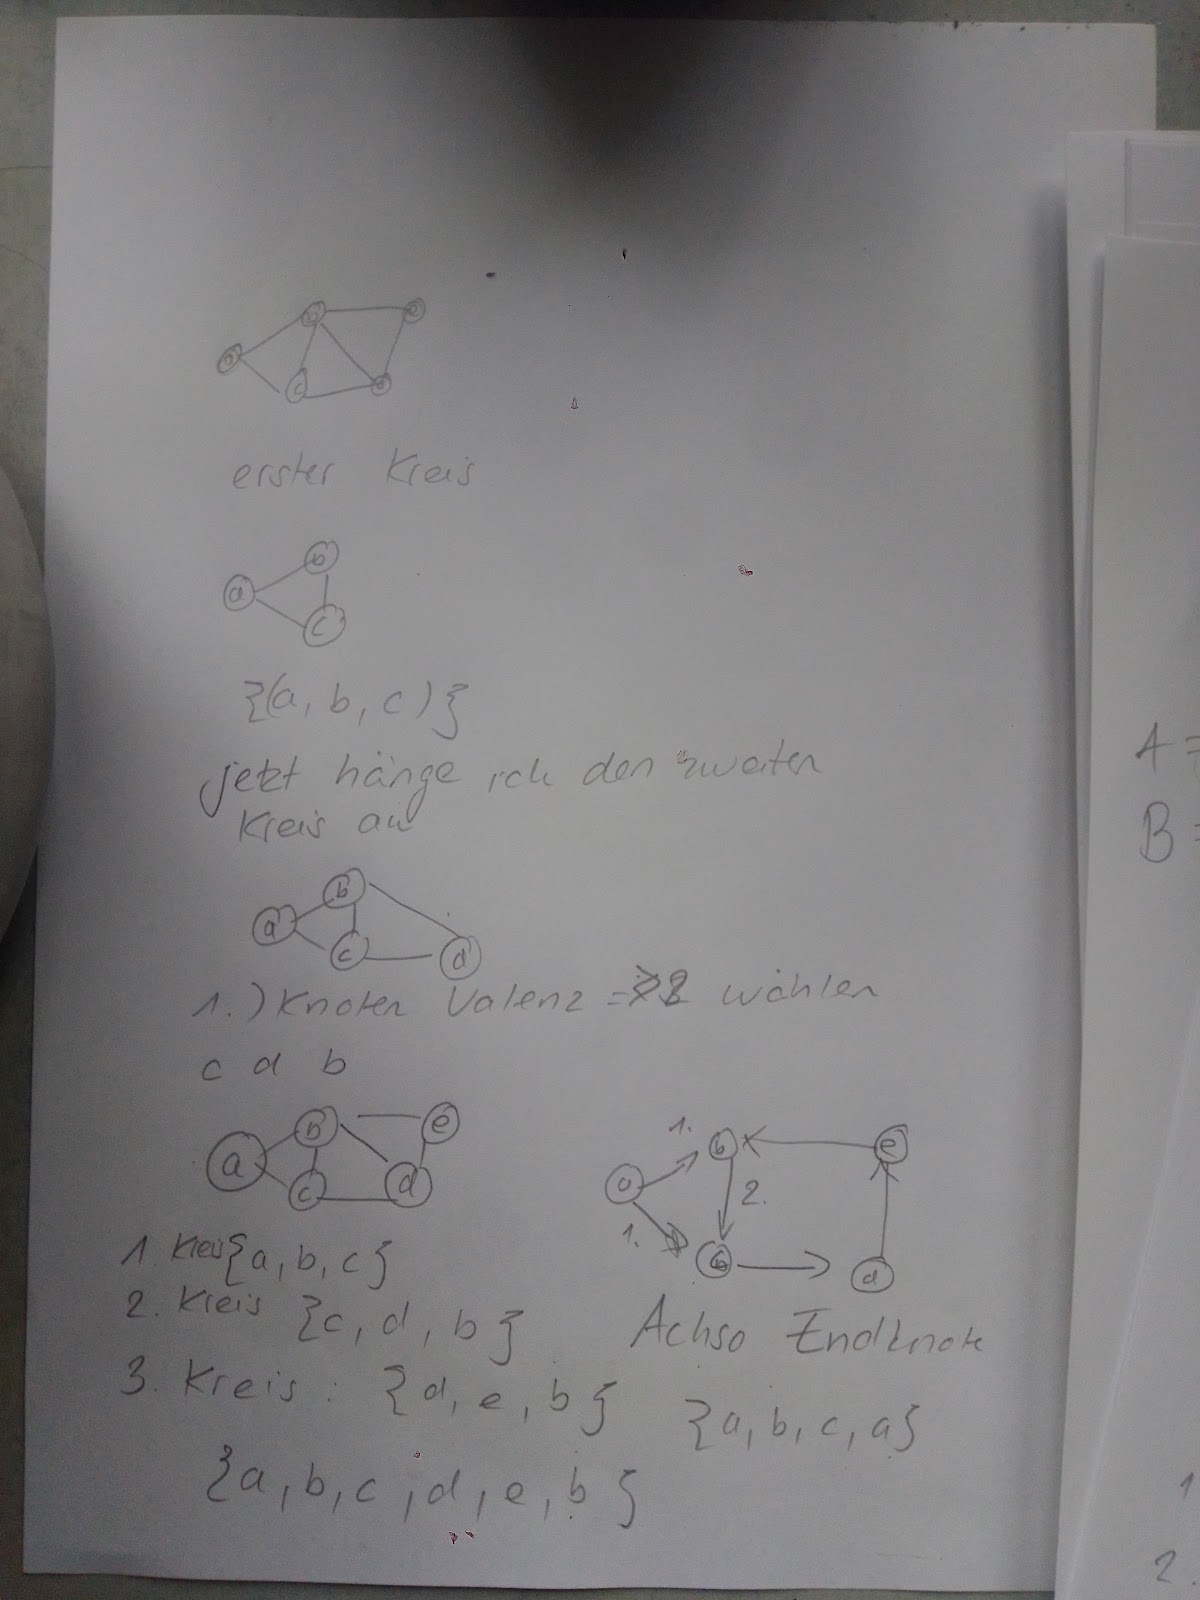 a b e
c d
erster Kreis
a b
c
{(a, b, c)}
jetzt hänge ich den zweiten
Kreis an
a b
c d
1.) Knoten Valenz = wählen
c d b
a b e
c d
1. Kreis {a, b, c}
2. Kreis {c, d, b}
3. Kreis : {d, e, b}
{a, b, c, d, e, b}
1. b e
a 2.
1. d
Achso Endknote
{a, b, c, a}
A =
B =
1
2.